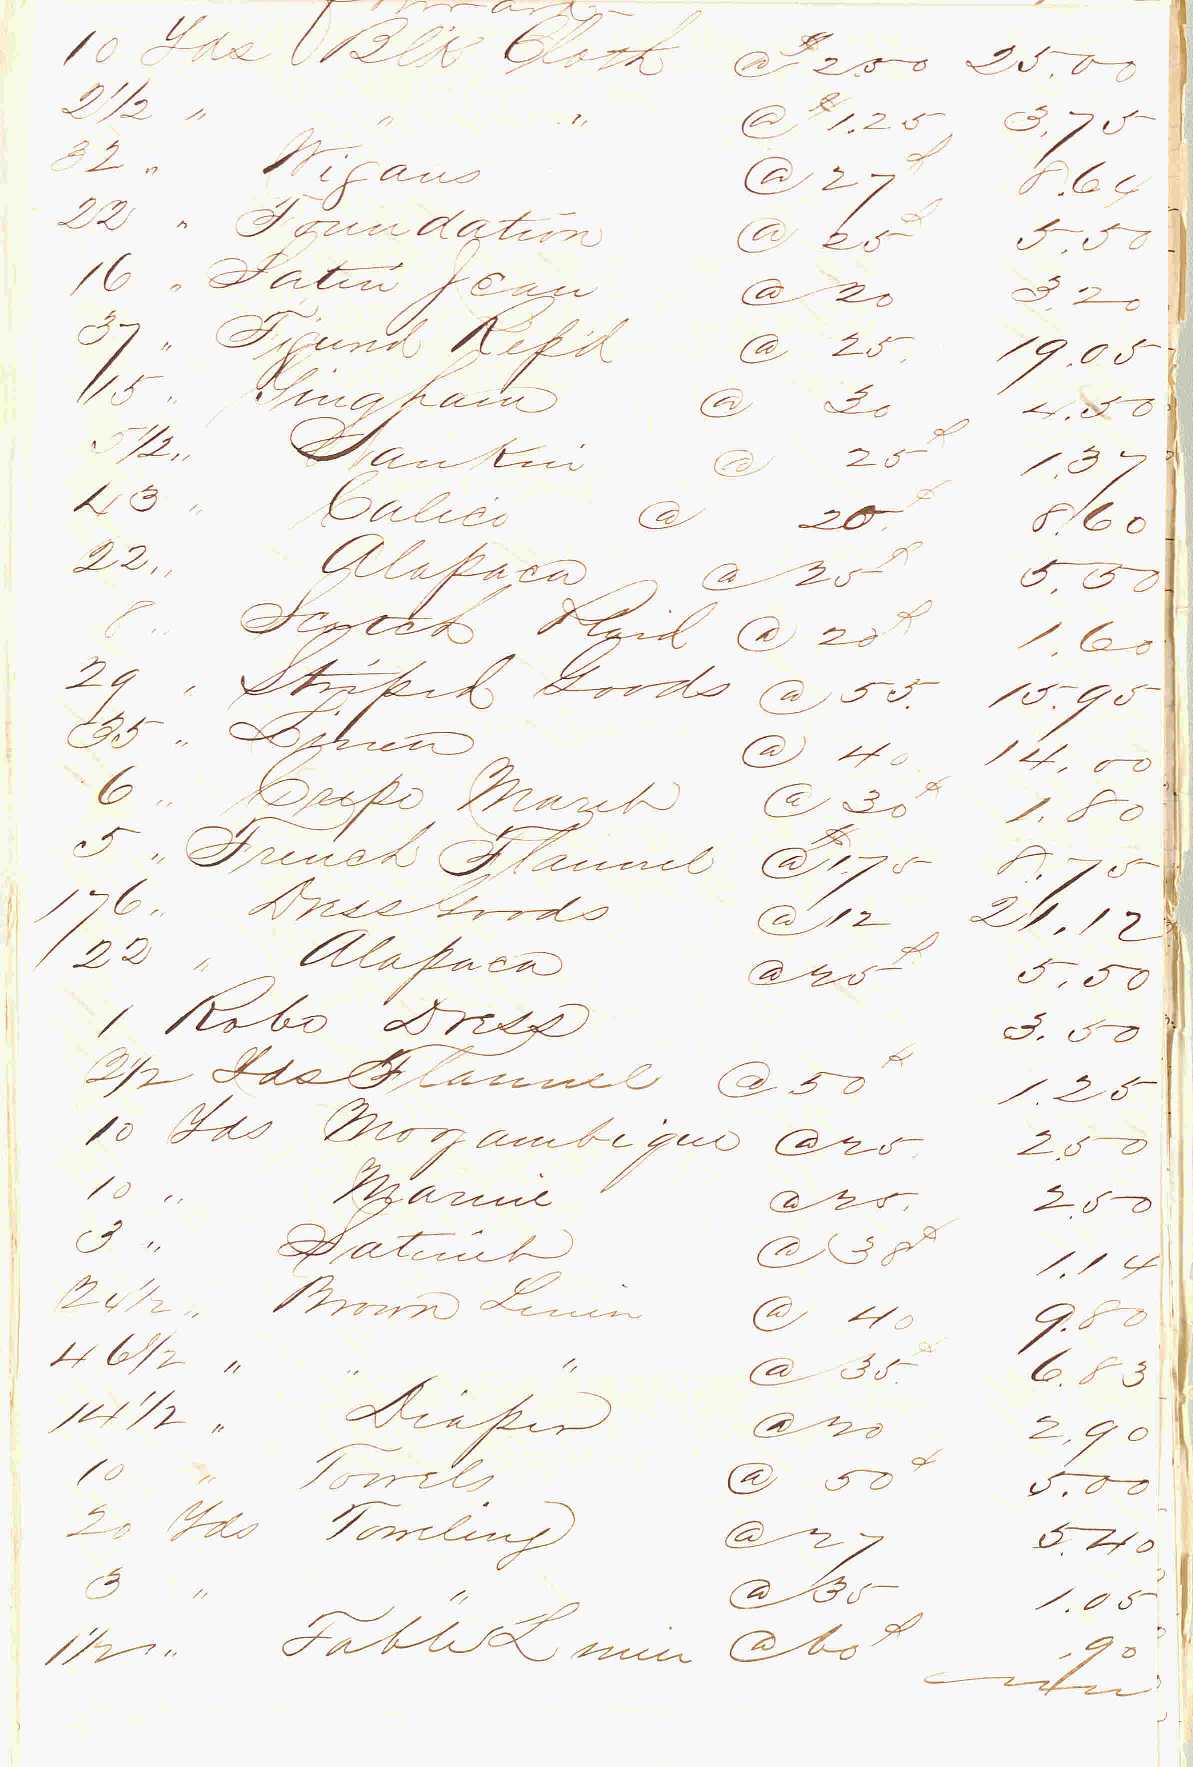 Forward
10 Yds Blk Cloth @ $2.50 25.00
2 1/2 " " " @ $1.25 3.75
32 " Wigans @ 27¢ 8.64
22 " Foundation @ 25¢ 5.50
16 " Satin Jean @ 20 3.20
37 " Figurd Rep'd @ 25. 19.05
15 " Gingham @ 30 4.50
5 1/2 " Nankin @ 25¢ 1.37
43 " Calico @ 20¢ 8.60
22 " Alapaca @ 25¢ 5.50
8 " Scotch Plaid @ 20¢ 1.60
29 " Striped Goods @ 55. 15.95
35 " Linen @ 40 14.00
6 " Crepe Mareb @ 30¢ 1.80
5 " French Flannel @ $1.75 8.75
176 " Dress Goods @ 12 21.12
22 " Alapaca @ 25¢ 5.50
1 Robe Dress 3.50
2 1/2 Yds Flannel @ 50¢ 1.25
10 Yds Mozambique @ 25. 2.50
10 " Marine @ 25. 2.50
3 " Satinet @ 38¢ 1.14
24 1/2 " Brown Linin @ 40 9.80
46 1/2 " " " @ 35¢ 6.83
14 1/2 " Diaper @ 20 2.90
10 " Towels @ 50¢ 5.00
20 Yds Toweling @ 27 5.40
3 " " @ 35 1.05
1 1/2 " Table Linin @ 60¢ .90